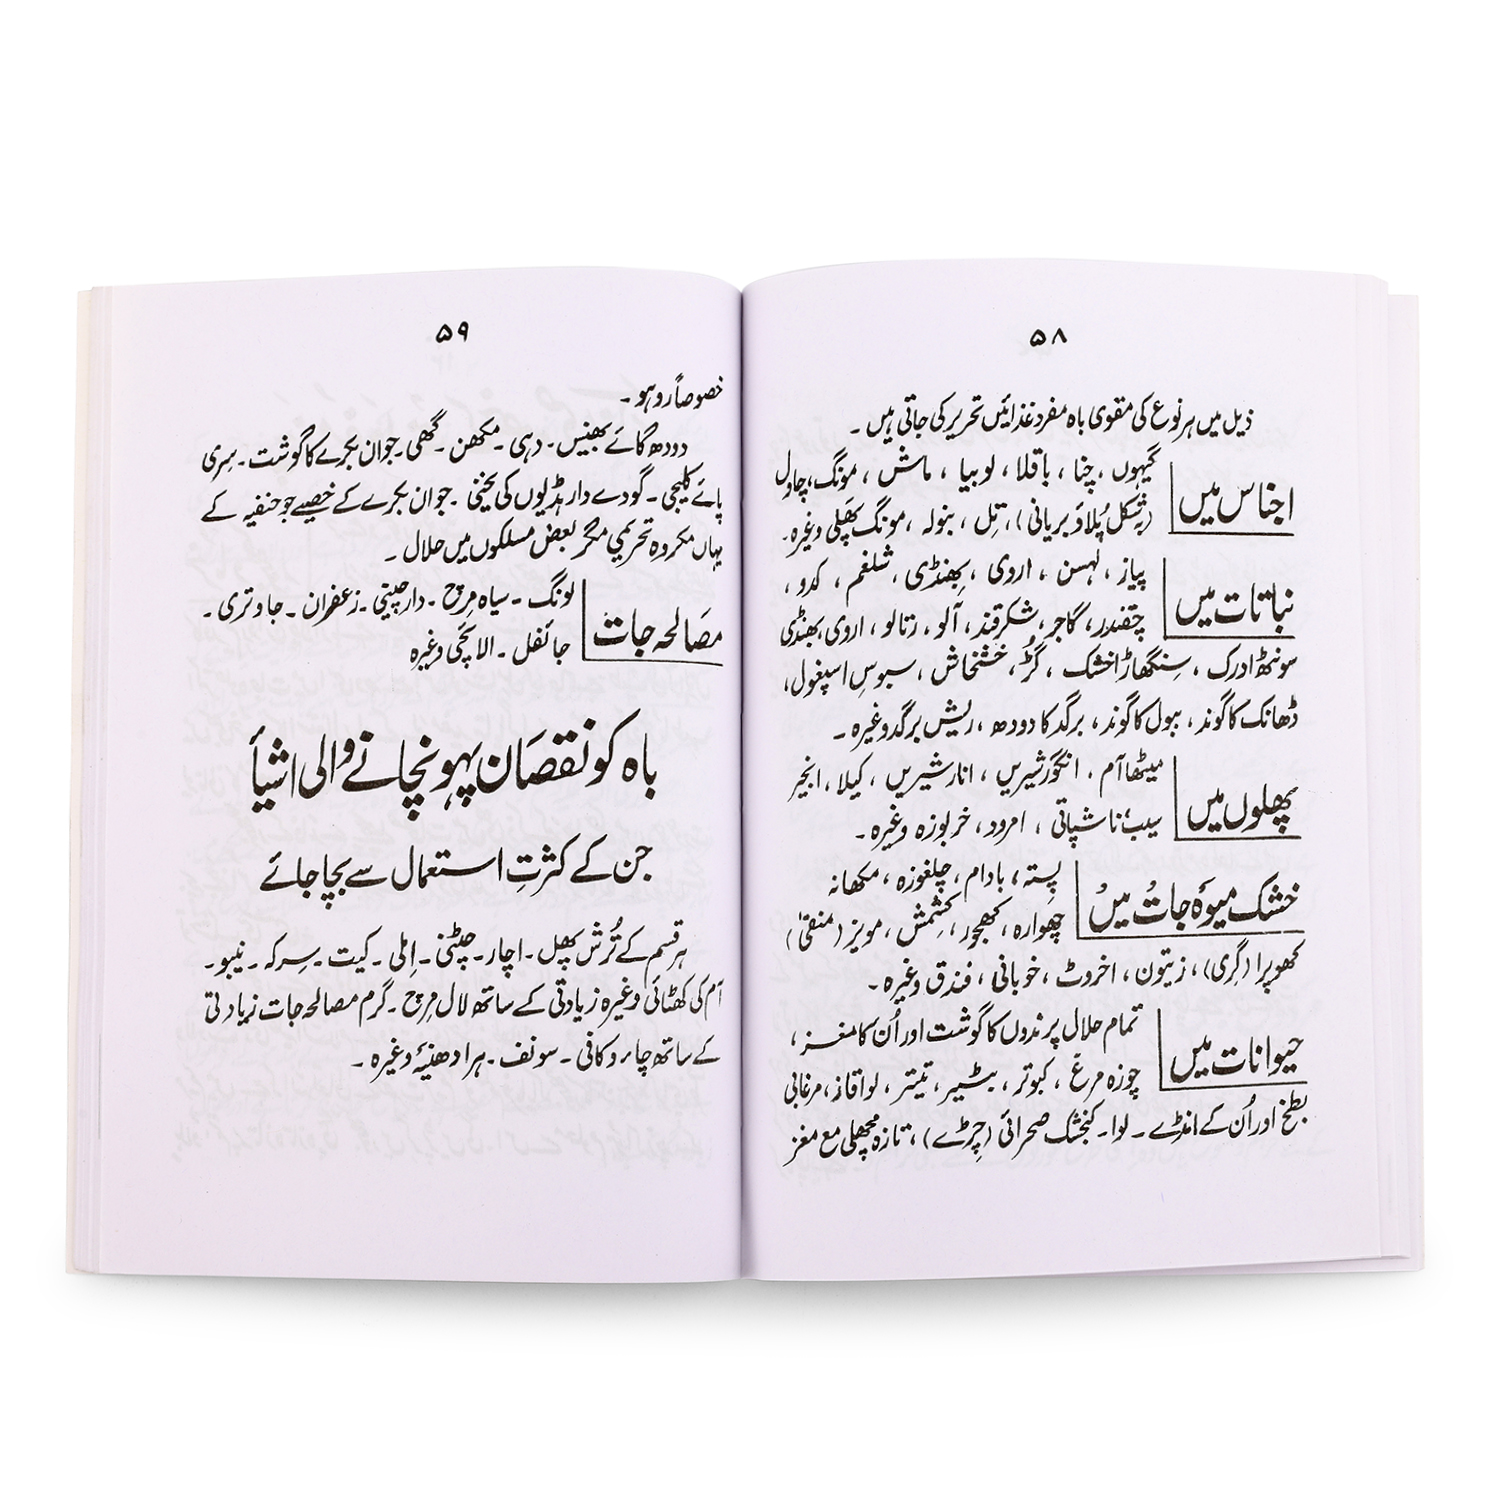 ۵۸
ذیل میں ہر نوع کی مقوی باہ مفرد غذائیں تحریر کی جاتی ہیں ۔
اجناس میں
گیہوں، چنا ، باقلا ، لوبیا ، ماش ، مونگ، چاول
(بشکل پُلاؤ بریانی)، تِل ، بنولہ ، مونگ پھَلی وغیرہ۔
نباتات میں
پیاز ، لہسن ، اروی ، بھنڈی ، شلغم ، کدو ،
چقندر، گاجر، شکرقند، آلو ، رتالو ، اروی، بھنڈی
سونٹھ ادرک ، سِنگھاڑا خشک ، گُڑ، خشخاش ، سبوسِ اسپغول،
ڈھانک کا گوند ، ببول کا گوند ، برگد کا دودھ ، ریش برگد وغیرہ ۔
پھلوں میں
میٹھا آم ، انگور شیریں ، انار شیریں ، کیلا ، انجیر
سیب، ناشپاتی ، امرود ، خربوزہ وغیرہ ۔
خشک میوہ جات میں
پِستہ ، بادام ، چلغوزہ ، مکھانہ
چھوارہ ، کھجور ، کِشمِش ، مویز (منقیٰ)
کھوپرا (گری) ، زیتون ، اخروٹ ، خوبانی ، فندق وغیرہ ۔
حیوانات میں
تمام حلال پرندوں کا گوشت اور اُن کا مغز ،
چوزہ مرغ ، کبوتر ، بٹیر ، تیتر ، لوا قاز ، مرغابی
بطخ اور اُن کے انڈے ۔ لوا۔ کنجشک صحرائی (چڑے) ، تازہ مچھلی مع مغز
۵۹
خصوصاً روہو ۔
دودھ گائے بھینس ۔ دہی ۔ مکھن ۔ گھی ۔ جوان بکرے کا گوشت ۔ سِری
پائے کلیجی ۔ گودے دار ہڈیوں کی یخنی ۔ جوان بکرے کے خصیے جو حنفیہ کے
یہاں مکروہ تحریمی مگر بعض مسلکوں میں حلال ۔
مصالحہ جات
لونگ ۔ سیاہ مرچ ۔ دار چینی ۔ زعفران ۔ جاوتری ۔
جائفل ۔ الائچی وغیرہ
باہ کو نقصان پہونچانے والی اشیأ
جن کے کثرتِ استعمال سے بچا جائے
ہر قسم کے تُرش پھل ۔ اچار ۔ چٹنی ۔ اِملی ۔ کیت ۔ سِرکہ ۔ نیبو ۔
آم کی کھٹائی وغیرہ زیادتی کے ساتھ لال مرچ ۔ گرم مصالحہ جات زیادتی
کے ساتھ چاء و کافی ۔ سونف ۔ ہرا دھنیۂ وغیرہ ۔